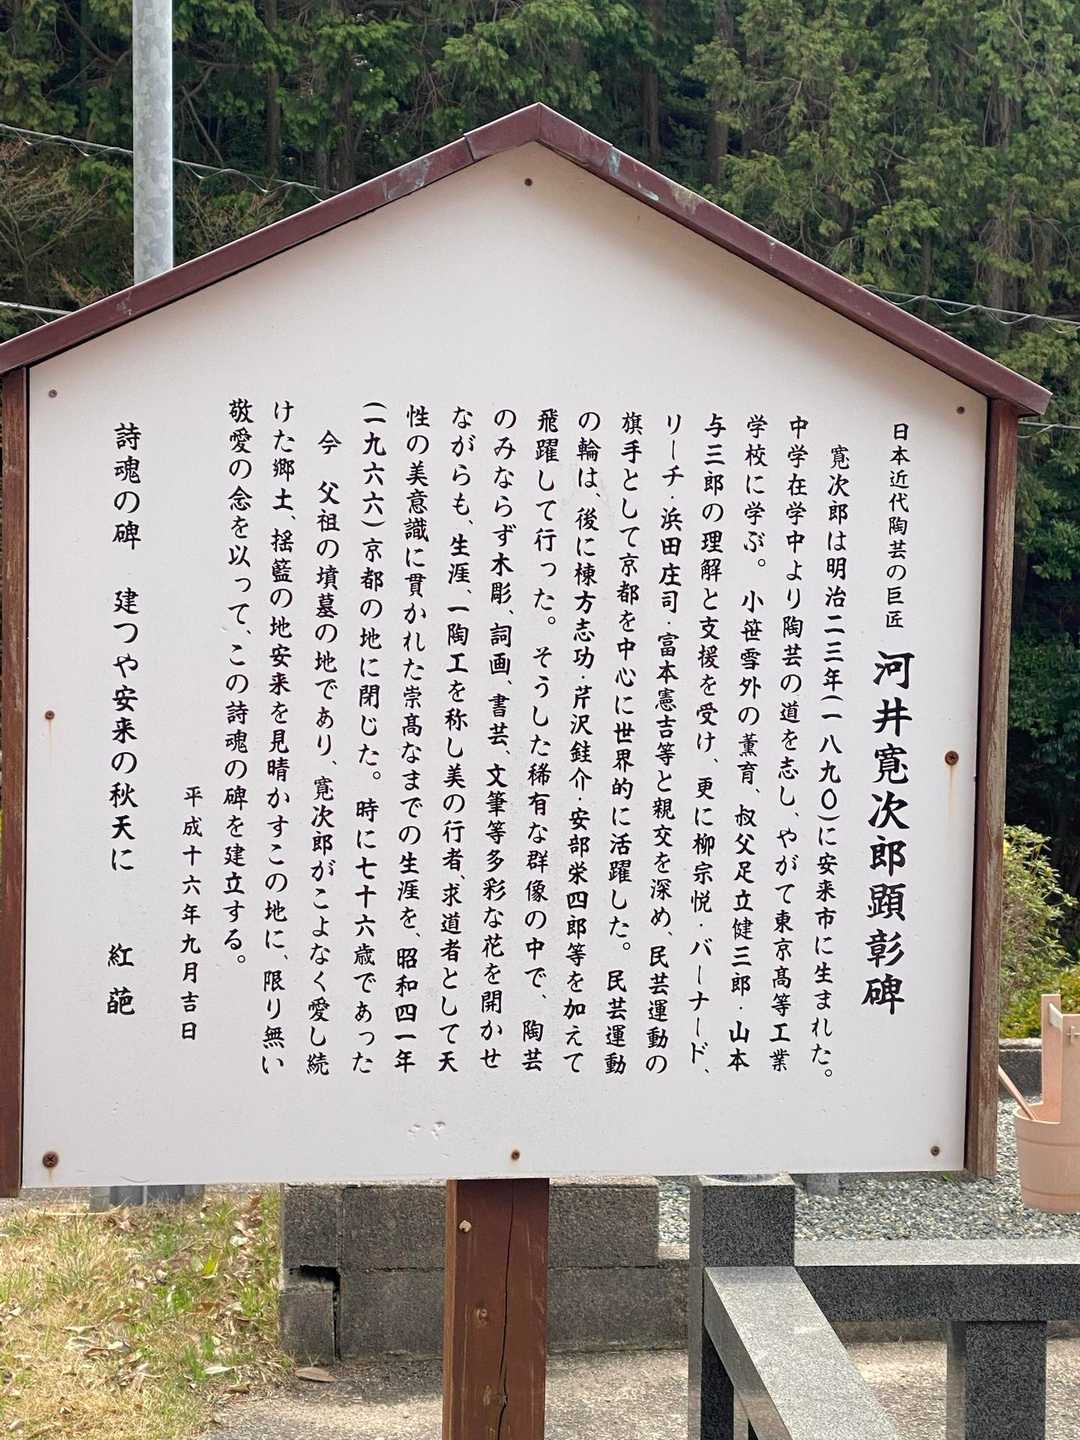 日本近代陶芸の巨匠 河井寛次郎顕彰碑
寛次郎は明治二三年(一八九〇)に安来市に生まれた。
中学在学中より陶芸の道を志し、やがて東京高等工業
学校に学ぶ。小笹雪外の薫育、叔父足立健三郎・山本
与三郎の理解と支援を受け、更に柳宗悦・バーナード、
リーチ・浜田庄司・富本憲吉等と親交を深め、民芸運動の
旗手として京都を中心に世界的に活躍した。民芸運動
の輪は、後に棟方志功・芹沢銈介・安部栄四郎等を加えて
飛躍して行った。そうした稀有な群像の中で、陶芸
のみならず木彫、詞画、書芸、文筆等多彩な花を開かせ
ながらも、生涯、一陶工を称し美の行者、求道者として天
性の美意識に貫かれた崇高なまでの生涯を、昭和四一年
(一九六六)京都の地に閉じた。時に七十六歳であった
今 父祖の墳墓の地であり、寛次郎がこよなく愛し続
けた郷土、揺籃の地安来を見晴かすこの地に、限り無い
敬愛の念を以って、この詩魂の碑を建立する。
平成十六年九月吉日
詩魂の碑 建つや安来の秋天に 紅葩